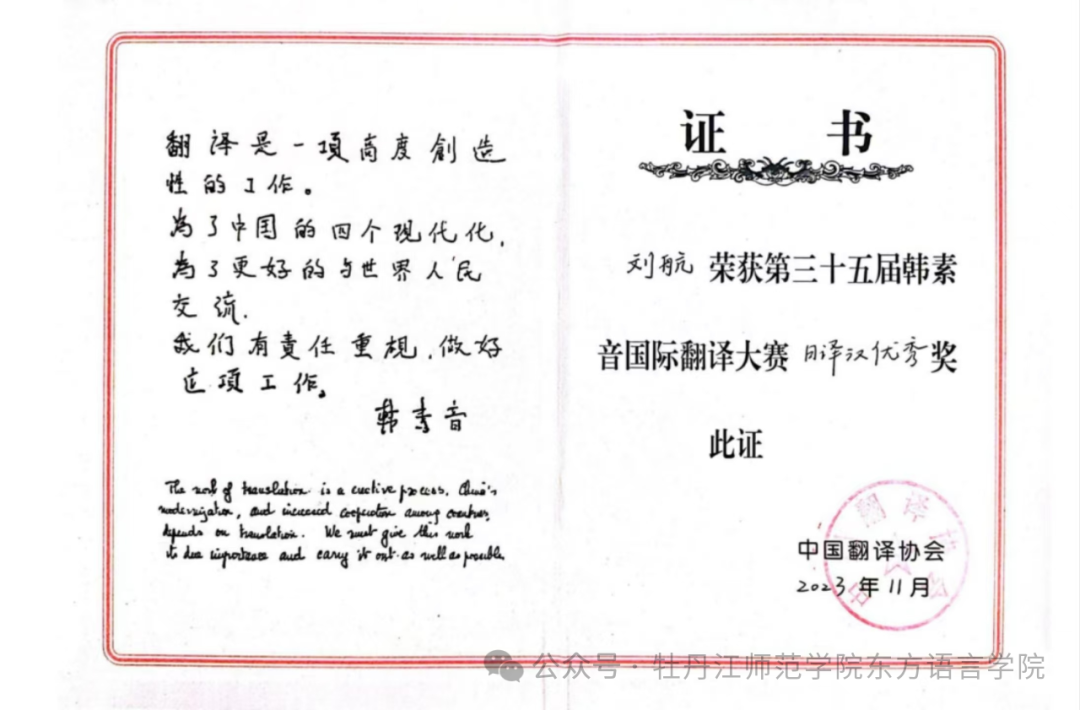 翻译是一項高度創造
性的工作。
為了中国的四个现代化,
為了更好的与世界人民
交流.
我们有責任重視,做好
这项工作。
韩素音
The work of translation is a creative process. China's
modernization, and increased cooperation among countries,
depends on translation. We must give this work
its due importance and carry it out as well as possible.
证 书
刘航 荣获第三十五届韩素
音国际翻译大赛 日译汉优秀奖
此证
中国翻译协会
2023年11月
公众号·牡丹江师范学院东方语言学院